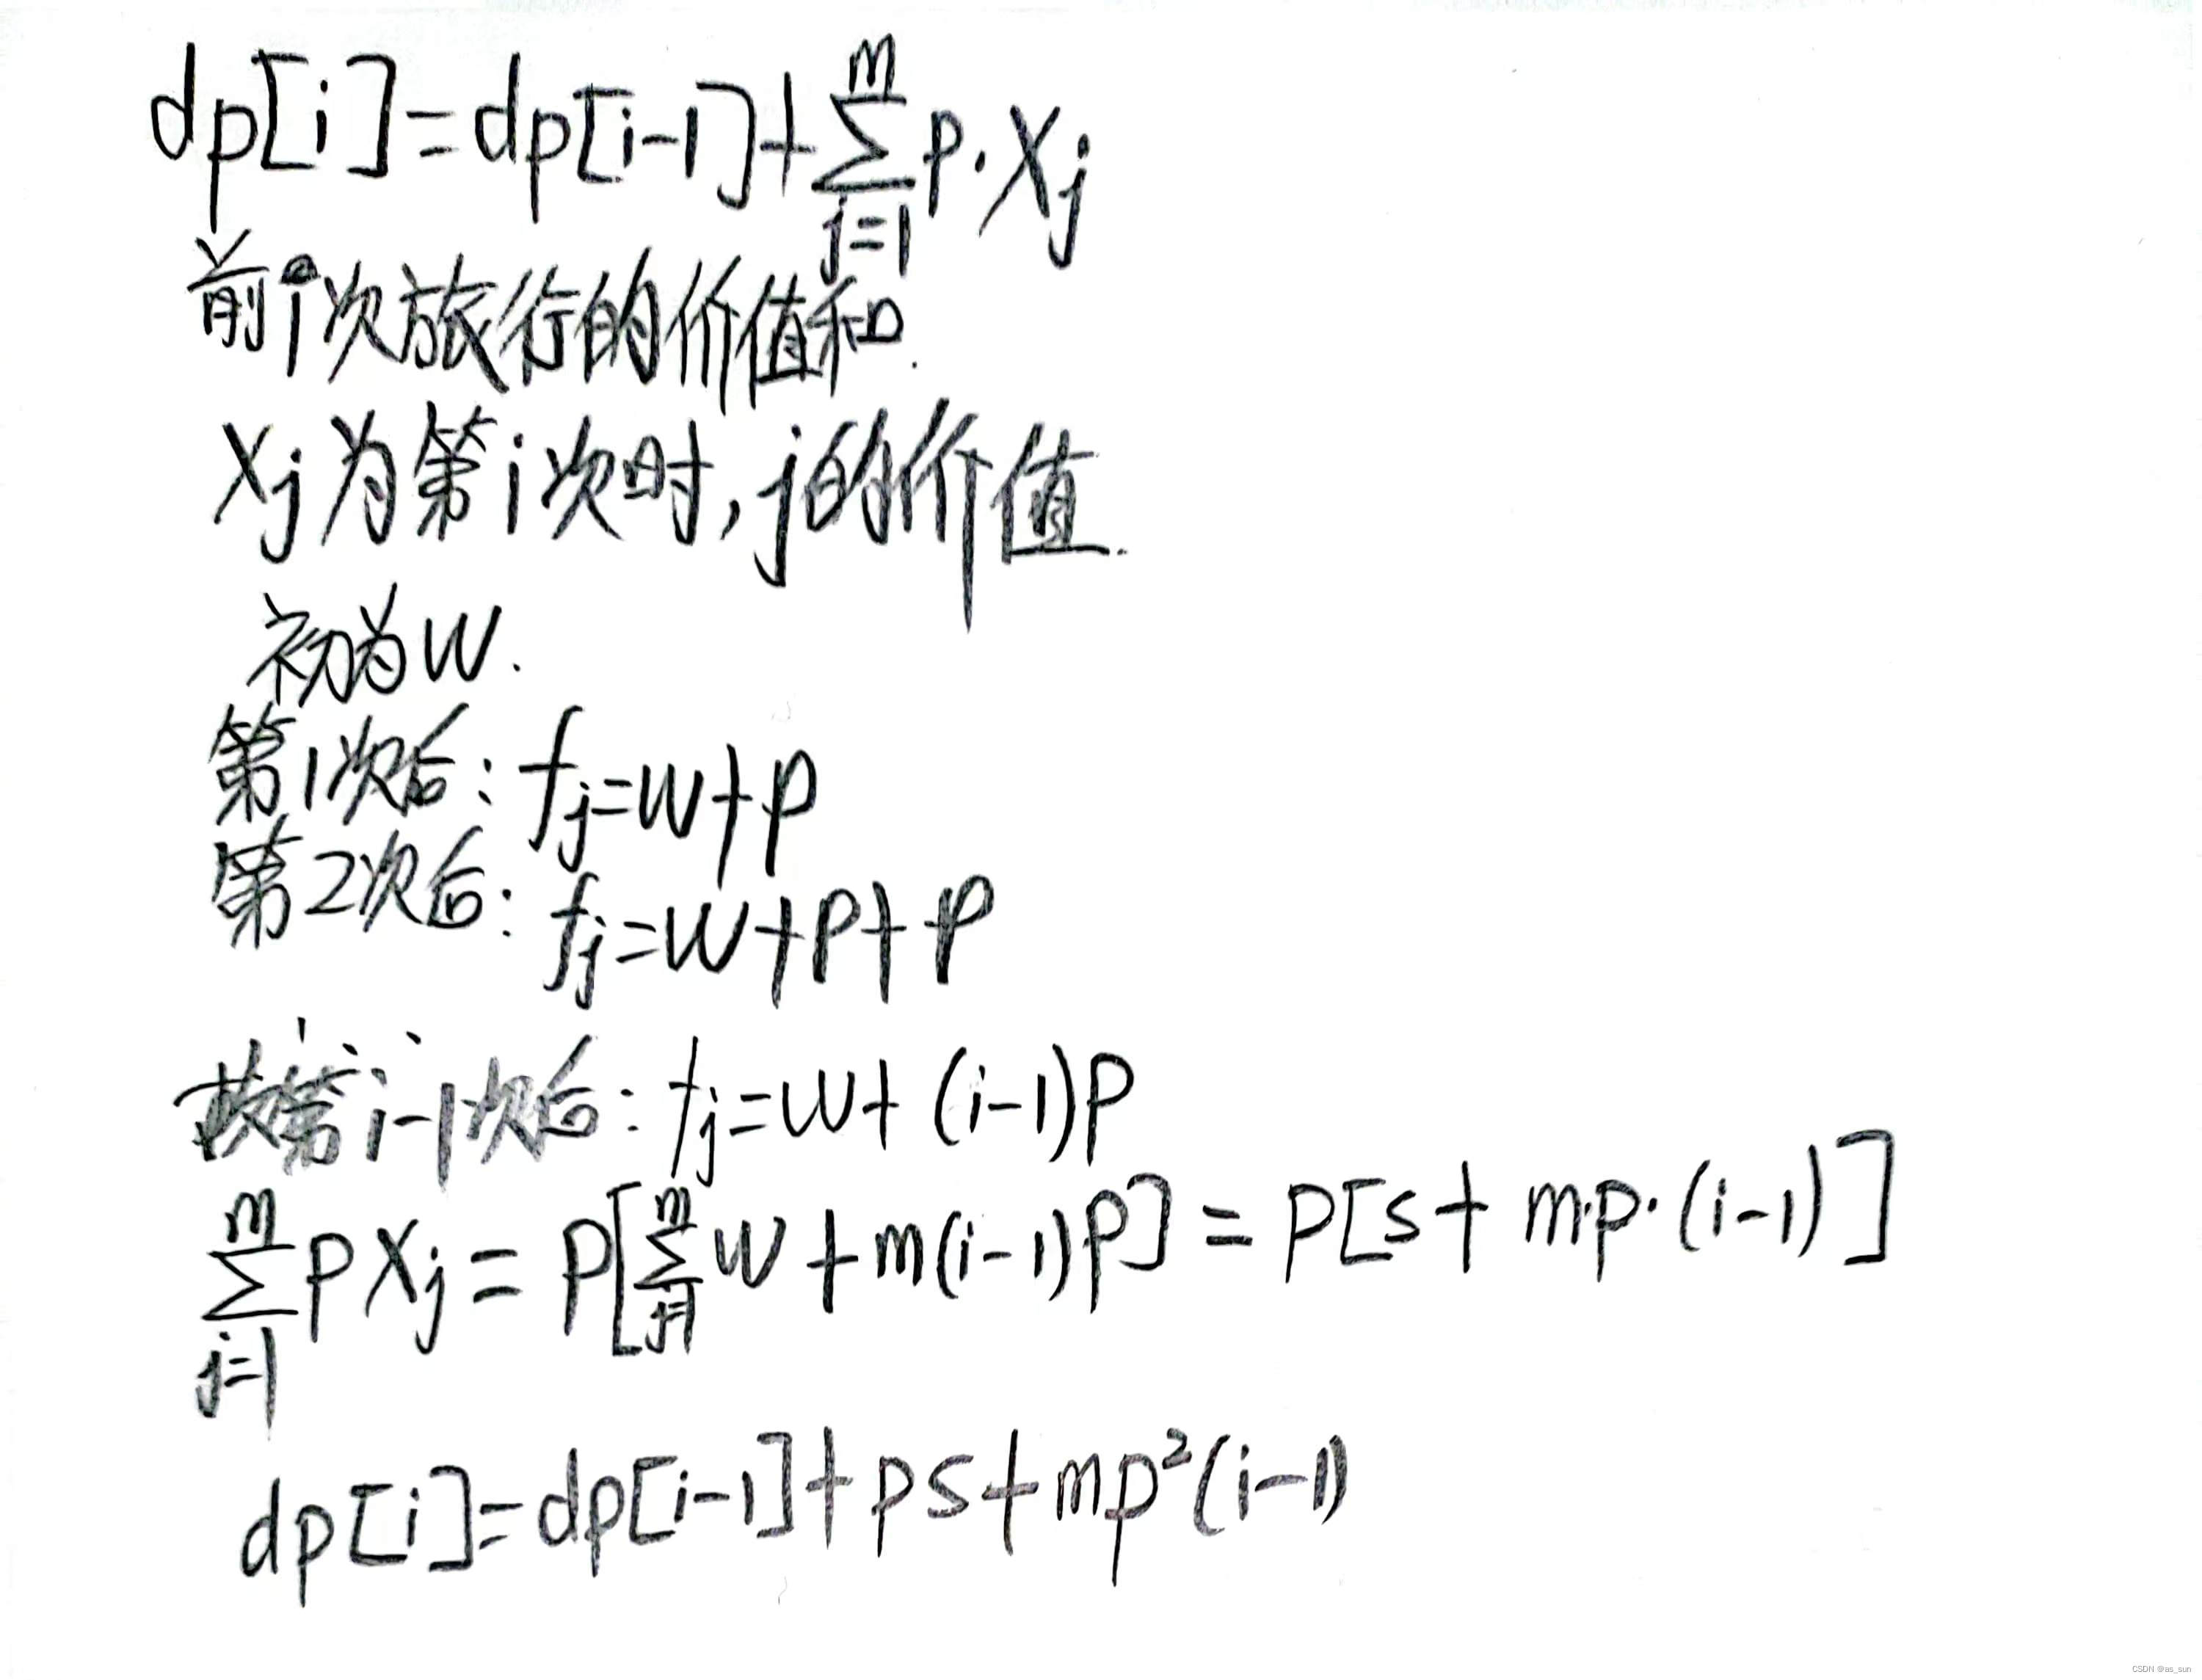 dp[i]=dp[i-1]+∑_{j=1}^{m} p·Xj
前i次旅行的价值和.
Xj为第i次时,j的价值.
初为W.
第1次后: fj=w+p
第2次后: fj=w+p+p
⋮ 故第i-1次后: fj=w+(i-1)p
∑_{j=1}^{m} pXj = p[∑_{j=1}^{m} w+m(i-1)p] = p[s+m·p·(i-1)]
dp[i]=dp[i-1]+ps+mp²(i-1)
CSDN @as_sun